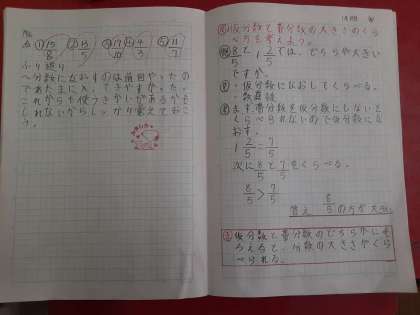 ① 15/8 ② 13/5 ③ 17/10 ④ 4/3 ⑤ 11/7
ふり返り
〜分数になおすのは前回やったの
であたまに入ってきやすかった。
これからも使うきかいがあるかも
しれないからしっかり覚えておこ
う。
仮分数と帯分数の大きさのくら
べ方を考えよう。
8/5と1 2/5では、どちらが大きい
ですか。
・仮分数になおしてくらべる。
・数直線
まず帯分数を仮分数にしないと
くらべられないので仮分数にな
おす。
1 2/5=7/5
次に8/5と7/5をくらべる。
8/5>7/5
答え 8/5の方が大きい。
仮分数と帯分数のどちらかにそ
ろえると、分数の大きさがくら
べられる。